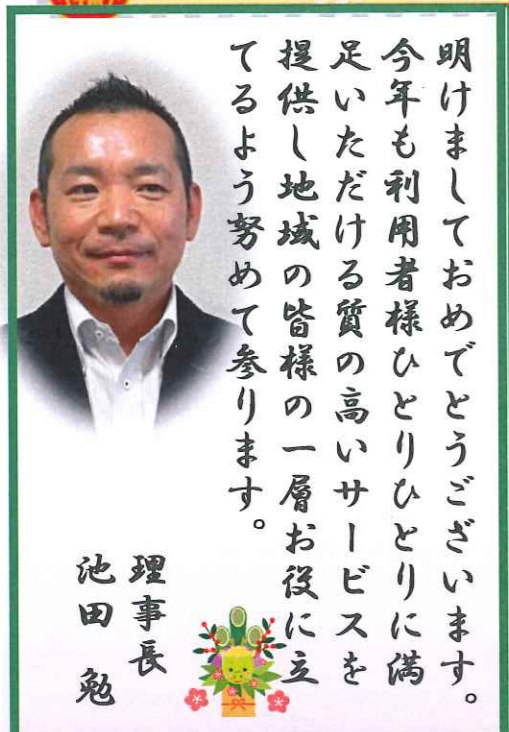 明けましておめでとうございます。
今年も利用者様ひとりひとりに満
足いただける質の高いサービスを
提供し地域の皆様の一層お役に立
てるよう努めて参ります。
理事長
池田 勉